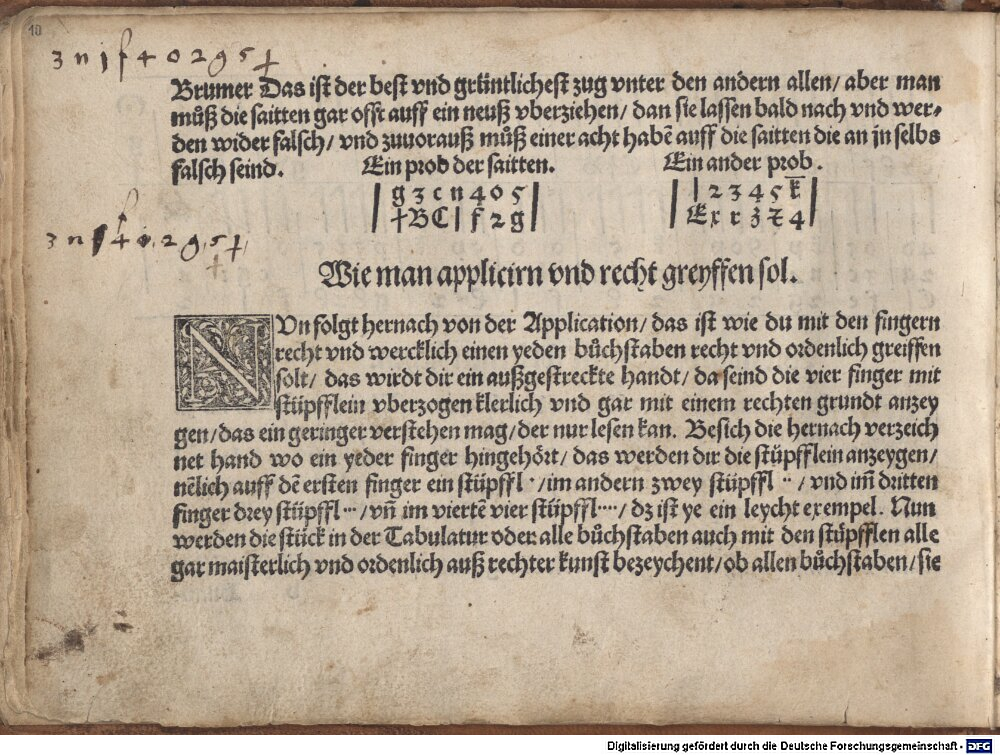 10
3 n j f 4 0 2 g 5 +
Brumer Das ist der best vnd grüntlichest zug vnter den andern allen/ aber man
můß die saitten gar offt auff ein neuß vberziehen/ dan sie lassen bald nach vnd wer-
den wider falsch/ vnd zuuorauß můß einer acht habē auff die saitten die an jn selbs
falsch seind.
Ein prob der saitten.
g 3 c n 4 0 5
+ B C l f 2 g
Ein ander prob.
l 2 3 4 5 k̄
4
3 n f 4 0 2 g 5 +
+
Wie man applicirn vnd recht greyffen sol.
NVn folgt hernach von der Application/ das ist wie du mit den fingern
recht vnd wercklich einen yeden bůchstaben recht vnd ordenlich greiffen
solt/ das wirdt dir ein außgestreckte handt/ da seind die vier finger mit
stüpfflein vberzogen klerlich vnd gar mit einem rechten grundt anzey
gen/ das ein geringer verstehen mag/ der nur lesen kan. Besich die hernach verzeich
net hand wo ein yeder finger hingehört/ das werden dir die stüpfflein anzeygen/
nēlich auff dē ersten finger ein stüpffl ·/ im andern zwey stüpffl ··/ vnd im̄ dritten
finger drey stüpffl ···/ vn̄ im viertē vier stüpffl ····/ dz ist ye ein leycht exempel. Nun
werden die stück in der Tabulatur oder alle bůchstaben auch mit den stüpfflen alle
gar maisterlich vnd ordenlich auß rechter kunst bezeychent/ ob allen bůchstaben/ sie
Digitalisierung gefördert durch die Deutsche Forschungsgemeinschaft - DFG